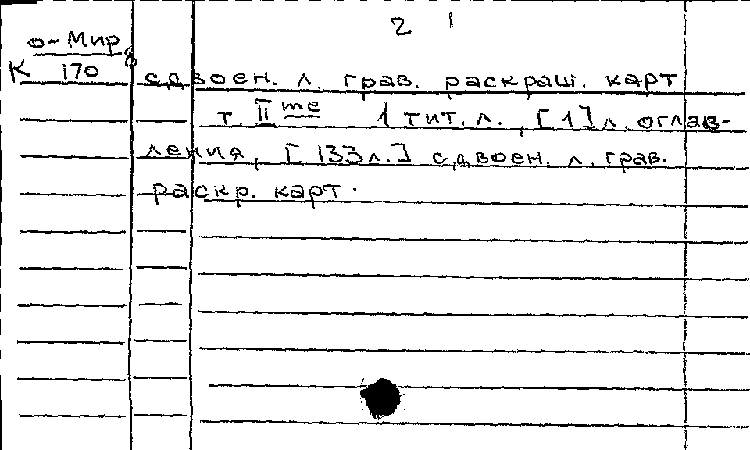 2 1
о-Мир 8
К 170
сдвоен. л. грав. раскраш. карт
т. II me 1 тит. л., [1] л. оглав-
ления, [133 л.] сдвоен. л. грав.
раскр. карт.